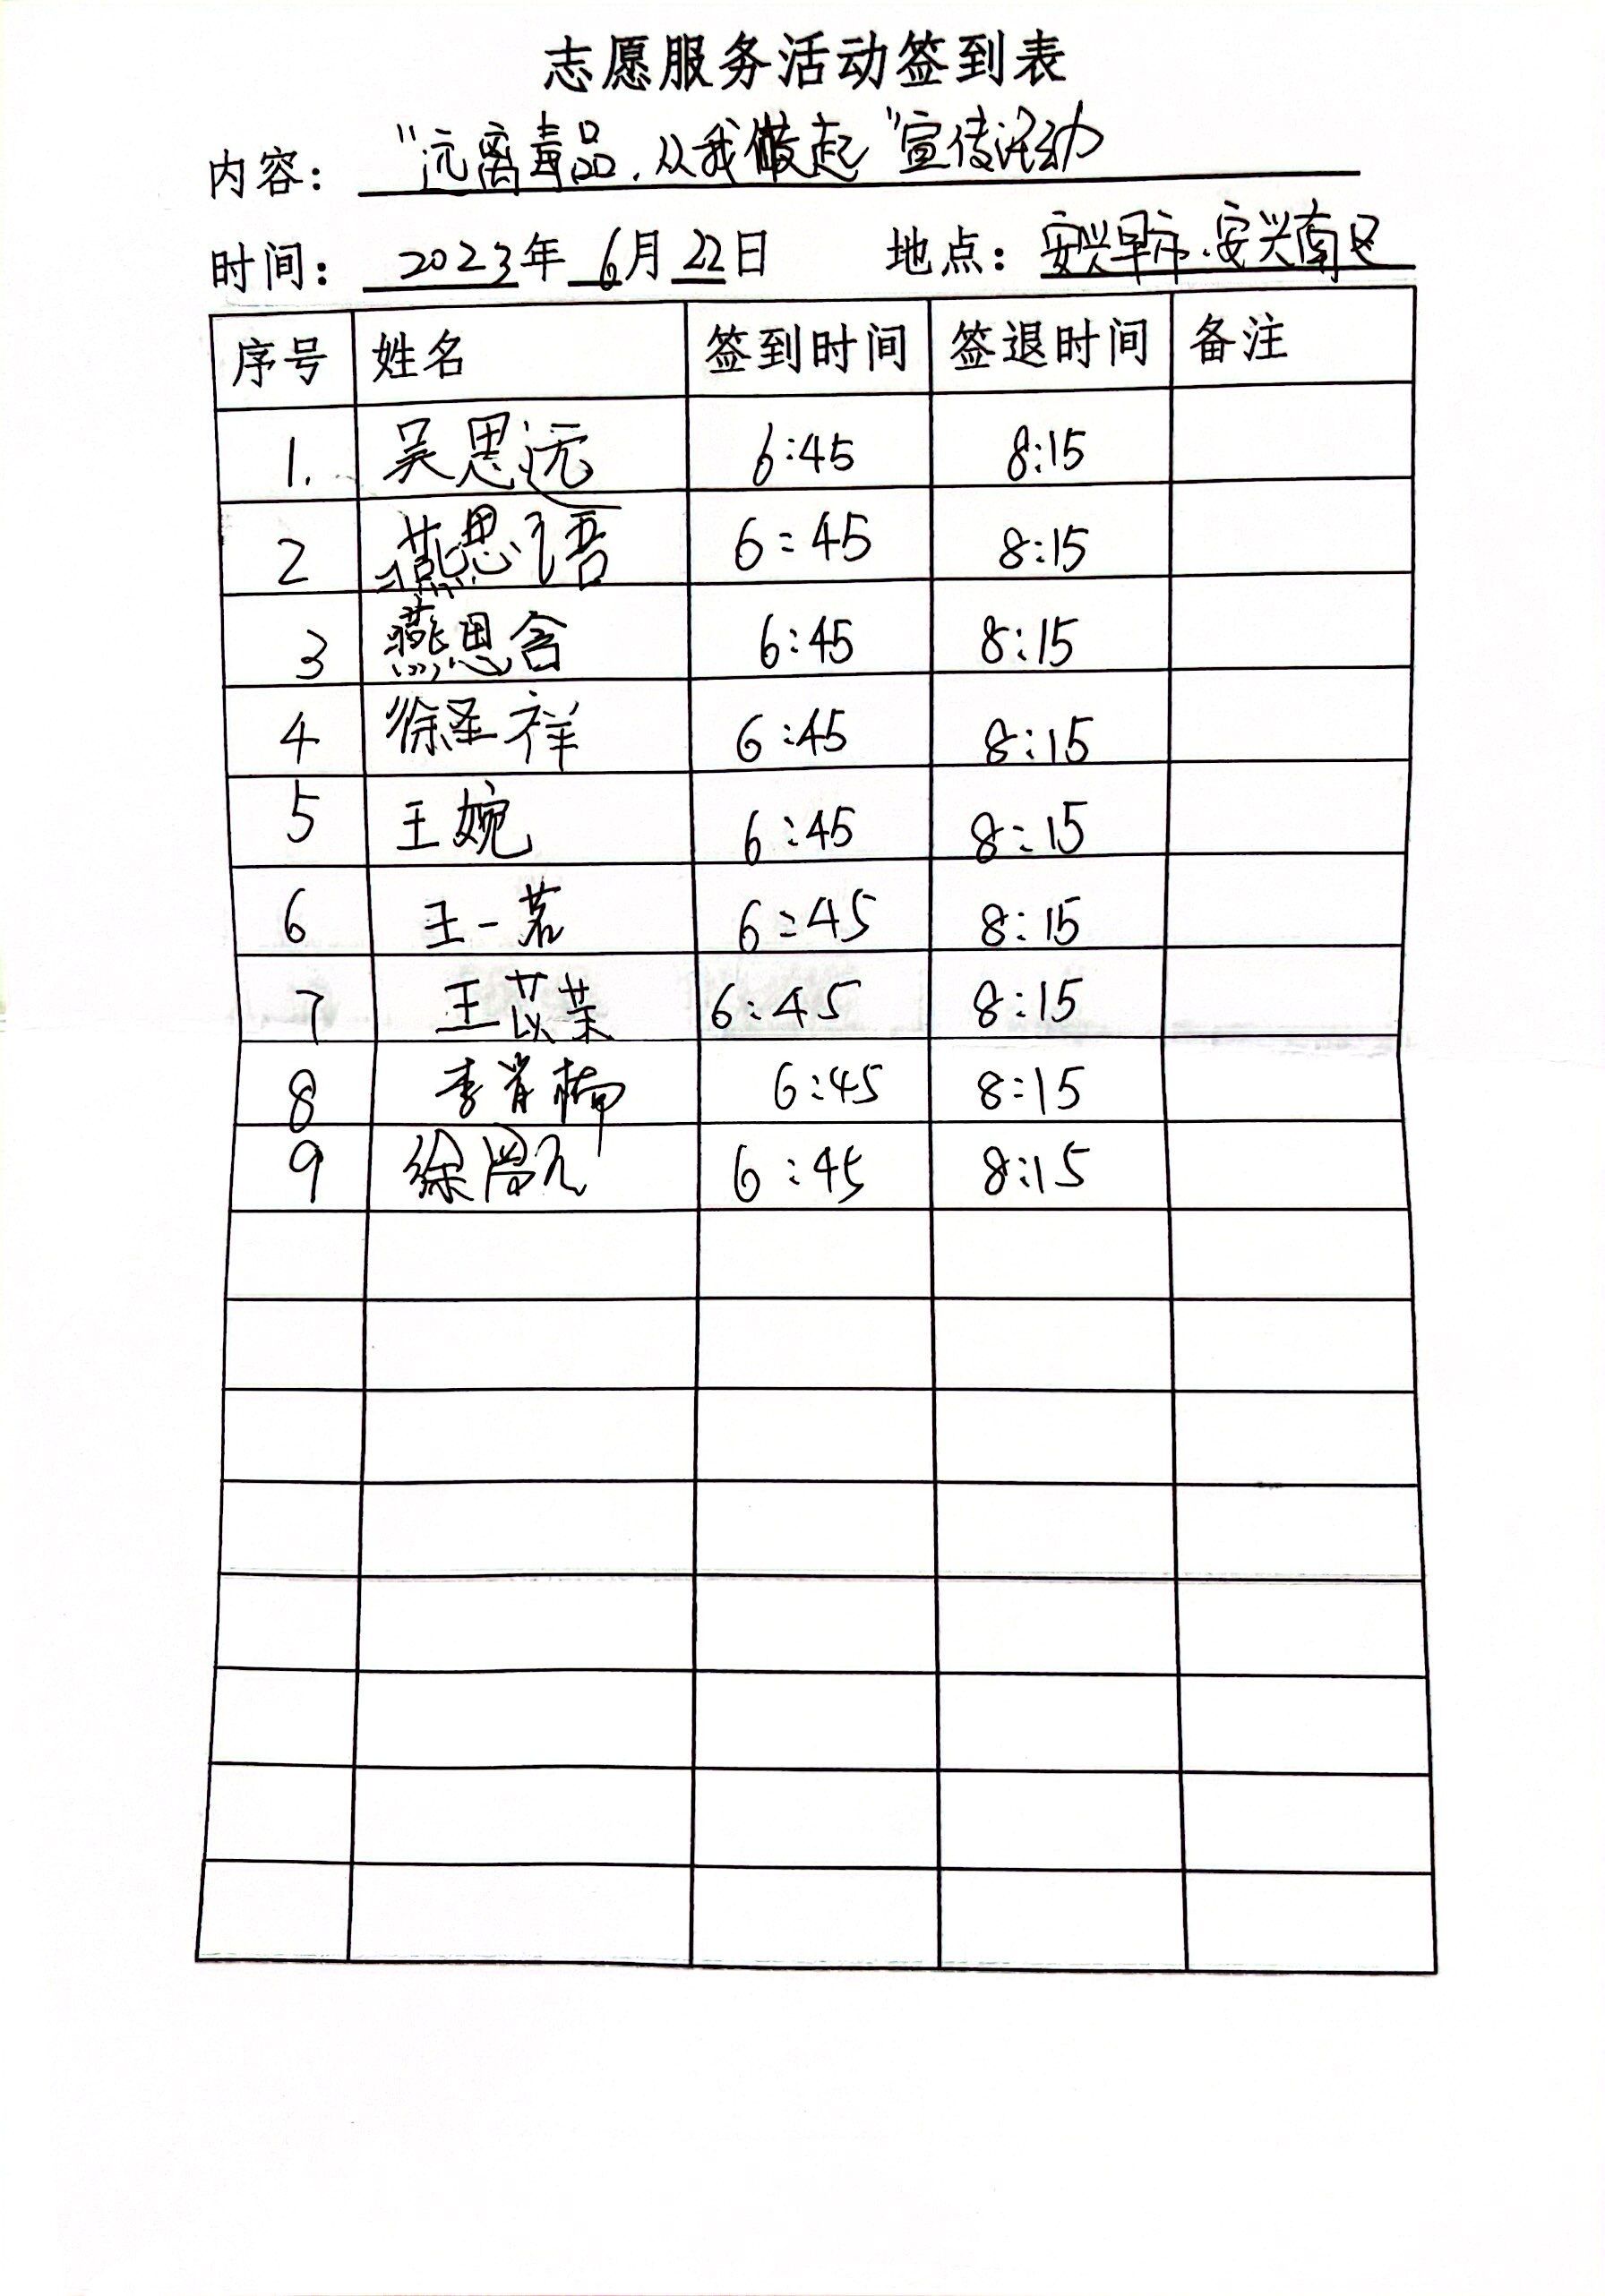 志愿服务活动签到表
内容： “远离毒品，从我做起”宣传活动
时间： 2023年 6月 22日 地点： 安兴早市、安兴南区
序号 姓名 签到时间 签退时间 备注
1. 吴思远 6:45 8:15
2 燕思语 6:45 8:15
3 燕思含 6:45 8:15
4 徐圣祥 6:45 8:15
5 王婉 6:45 8:15
6 王一茗 6:45 8:15
7 王苡茉 6:45 8:15
8 李肖楠 6:45 8:15
9 徐 6:45 8:15